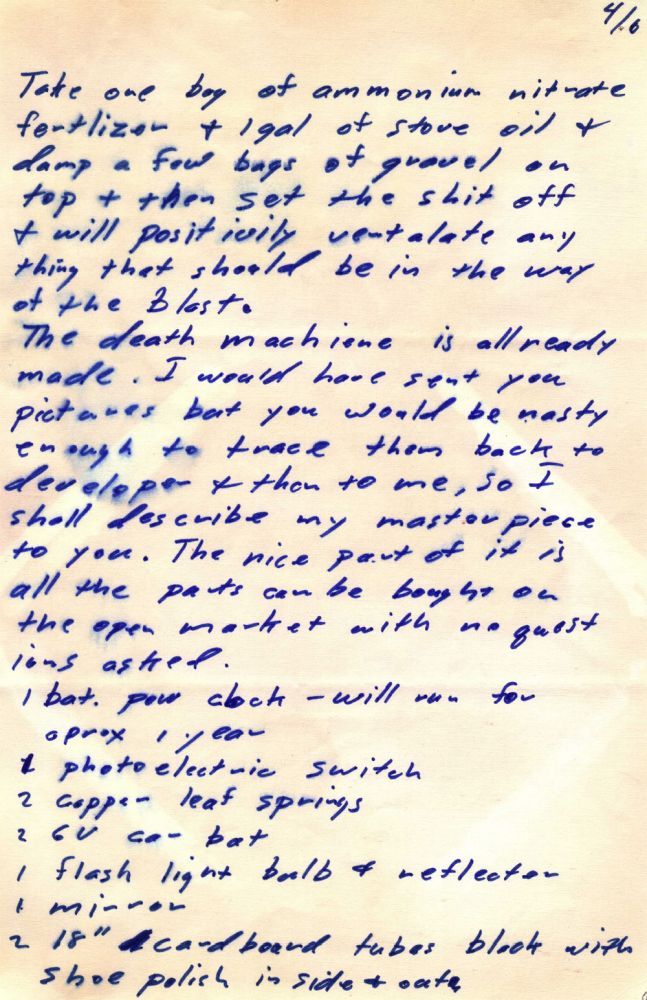 4/6
Take one bag of ammonium nitrate
fertlizer + 1gal of stove oil &
damp a few bags of gravel on
top + then set the shit off
+ will positivily ventalate any
thing that should be in the way
of the Blast.
The death machiene is allready
made. I would have sent you
pictures but you would be nasty
enough to trace them back to
developer + then to me, so I
shall describe my masterpiece
to you. The nice part of it is
all the parts can be bought on
the open market with no quest
ions asked.
1 bat. pow clock - will run for
aprox 1 year
1 photoelectric switch
2 copper leaf springs
2 6V car bat
1 flash light bulb & reflector
1 mirror
2 18" cardboard tubes black with
shoe polish in side + oute